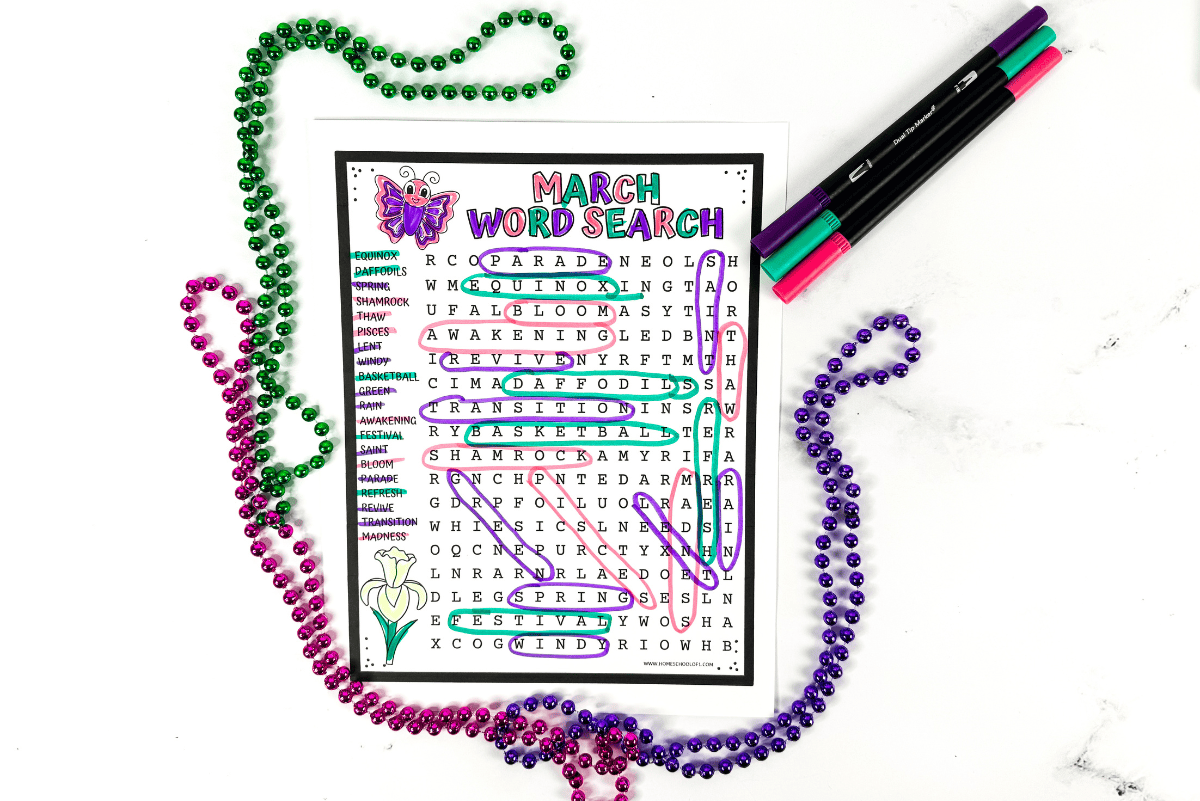 Dual Tip Marker
MARCH
WORD SEARCH
EQUINOX
DAFFODILS
SPRING
SHAMROCK
THAW
PISCES
LENT
WINDY
BASKETBALL
GREEN
RAIN
AWAKENING
FESTIVAL
SAINT
BLOOM
PARADE
REFRESH
REVIVE
TRANSITION
MADNESS
R C O P A R A D E N E O L S H
W M E Q U I N O X I N G T A O
U F A L B L O O M A S Y T I R
A W A K E N I N G L E D B N T
I R E V I V E N Y R F T M T H
C I M A D A F F O D I L S S A
T R A N S I T I O N I N S R W
R Y B A S K E T B A L L T E R
S H A M R O C K A M Y R I F A
R G N C H P N T E D A R M R R
G D R P F O I L U O L R A E A
W H I E S I C S L N E E D S I
O Q C N E P U R C T Y X N H N
L N R A R N R L A E D O E T L
D L E G S P R I N G S E S L N
E F E S T I V A L Y W O S H A
X C O G W I N D Y R I O W H B
WWW.HOMESCHOOLOF1.COM